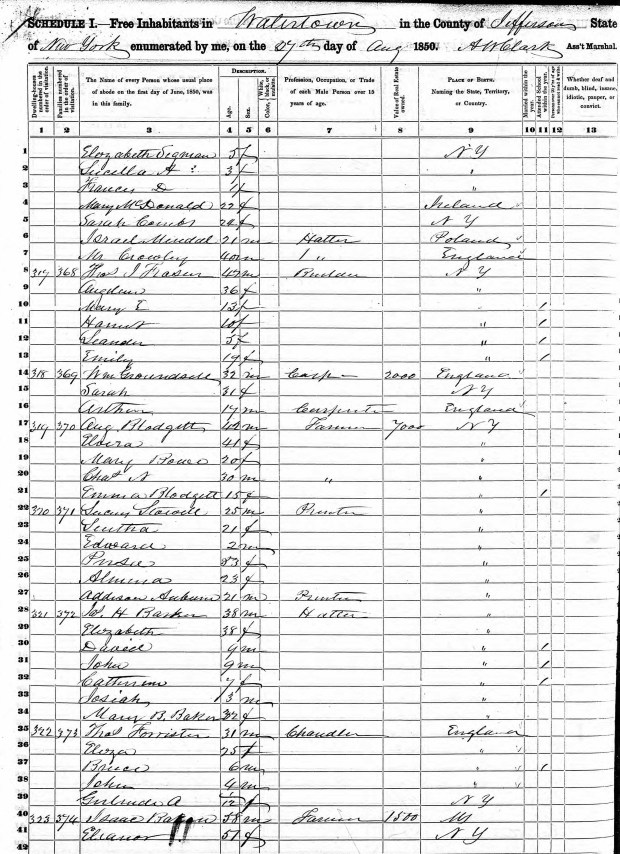 SCHEDULE I.—Free Inhabitants in Watertown in the County of Jefferson State
of New York enumerated by me, on the 27th day of Aug 1850. A W Clark Ass't Marshal.
DESCRIPTION.
Dwelling-houses numbered in the order of visitation.
Families numbered in the order of visitation.
The Name of every Person whose usual place of abode on the first day of June, 1850, was in this family.
Age.
Sex.
Color, White, black, or mulatto.
Profession, Occupation, or Trade of each Male Person over 15 years of age.
Value of Real Estate owned.
PLACE OF BIRTH. Naming the State, Territory, or Country.
Married within the year.
Attended School within the year.
Whether deaf and dumb, blind, insane, idiotic, pauper, or convict.
1 2 3 4 5 6 7 8 9 10 11 12 13
1 Elizabeth 5 f N Y
2 A 3 f "
3 Frances D 1 f "
4 Mary McDonald 22 f Ireland
5 Sarah Combs 24 f N Y
6 Israel 21 m Hatter Poland
7 Mr Crowley 40 m " England
8 317 368 Thos J Fraser 42 m Builder N Y
9 36 f "
10 Mary E 13 f " 1
11 Harriet 10 f " 1
12 Leander 5 " 1
13 Emily 19 f " 1
14 318 369 Wm 32 m Carp 2000 England
15 Sarah 31 f N Y
16 Arthur 17 m Carpenter England
17 319 370 Aug Blodgett 42 m Farmer 7000 N Y
18 Elvira 41 f "
19 Mary 20 f "
20 Chas N 30 m " "
21 Emma Blodgett 15 f " 1
22 320 371 Stowell 25 m Printer "
23 21 f "
24 Edward 2 m "
25 53 f "
26 Almena 23 f "
27 Addison Auburn 21 m Printer "
28 321 372 Js. H Barker 38 m Hatter "
29 Elizabeth 38 f "
30 David 9 m " 1
31 John 9 m " 1
32 Catherine 7 f " 1
33 Josiah 3 m "
34 Mary B. Baker 32 f "
35 322 373 Thos Forrister 31 m Chandler England
36 Eliza 25 f "
37 Bruce 6 m " 1
38 John 4 m "
39 Gertrude A f N Y
40 323 374 Isaac 58 m Farmer 1500
41 Eleanor 51 f N Y
42